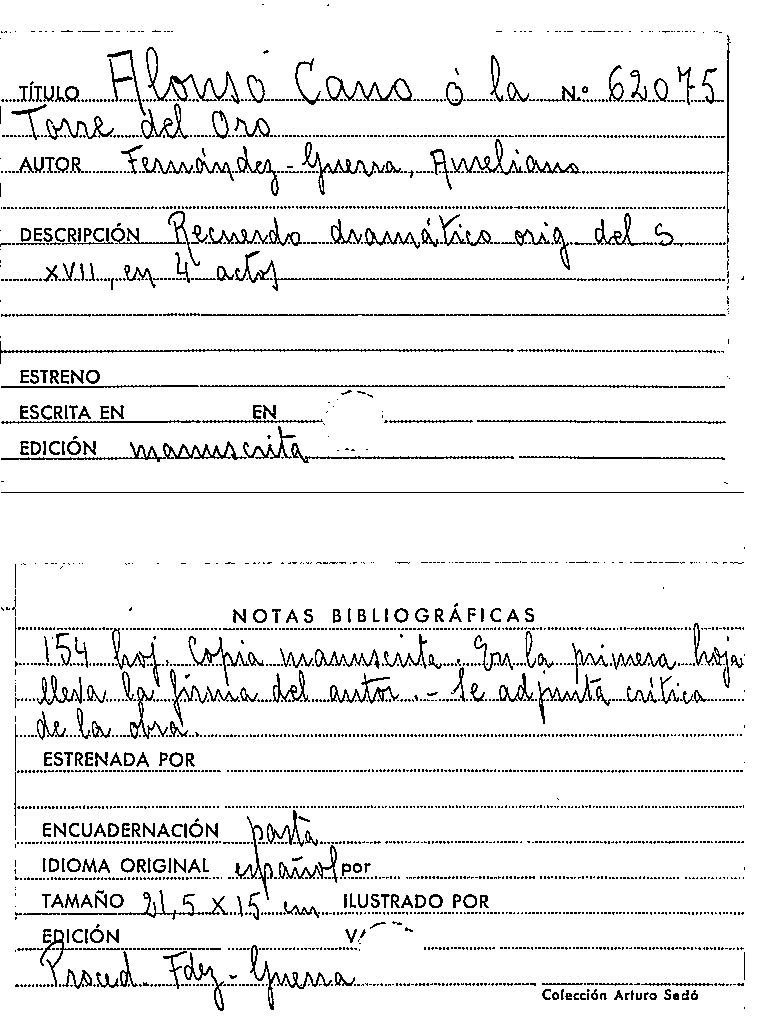 TÍTULO Alonso Cano ó la N.º 62075
Torre del Oro
AUTOR Fernández-Guerra, Aureliano
DESCRIPCIÓN Recuerdo dramático orig. del S.
XVII, en 4 actos
ESTRENO
ESCRITA EN EN
EDICIÓN manuscrita
NOTAS BIBLIOGRÁFICAS
154 hoj. Copia manuscrita. En la primera hoja
lleva la firma del autor.- Se adjunta crítica
de la obra.
ESTRENADA POR
ENCUADERNACIÓN pasta
IDIOMA ORIGINAL español por
TAMAÑO 21,5 x 15 cm ILUSTRADO POR
EDICIÓN
Proced. Fdez-Guerra
Colección Arturo Sedó